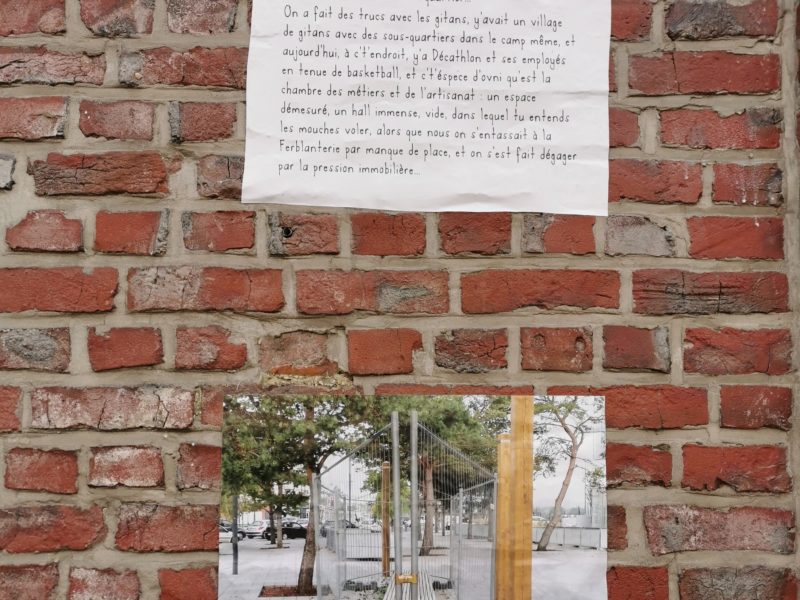 quartier...
On a fait des trucs avec les gitans, y'avait un village
de gitans avec des sous-quartiers dans le camp même, et
aujourd'hui, à c't'endroit, y'a Décathlon et ses employés
en tenue de basketball, et c't'éspece d'ovni qu'est la
chambre des métiers et de l'artisanat : un espace
démesuré, un hall immense, vide, dans lequel tu entends
les mouches voler, alors que nous on s'entassait à la
Ferblanterie par manque de place, et on s'est fait dégager
par la pression immobilière...